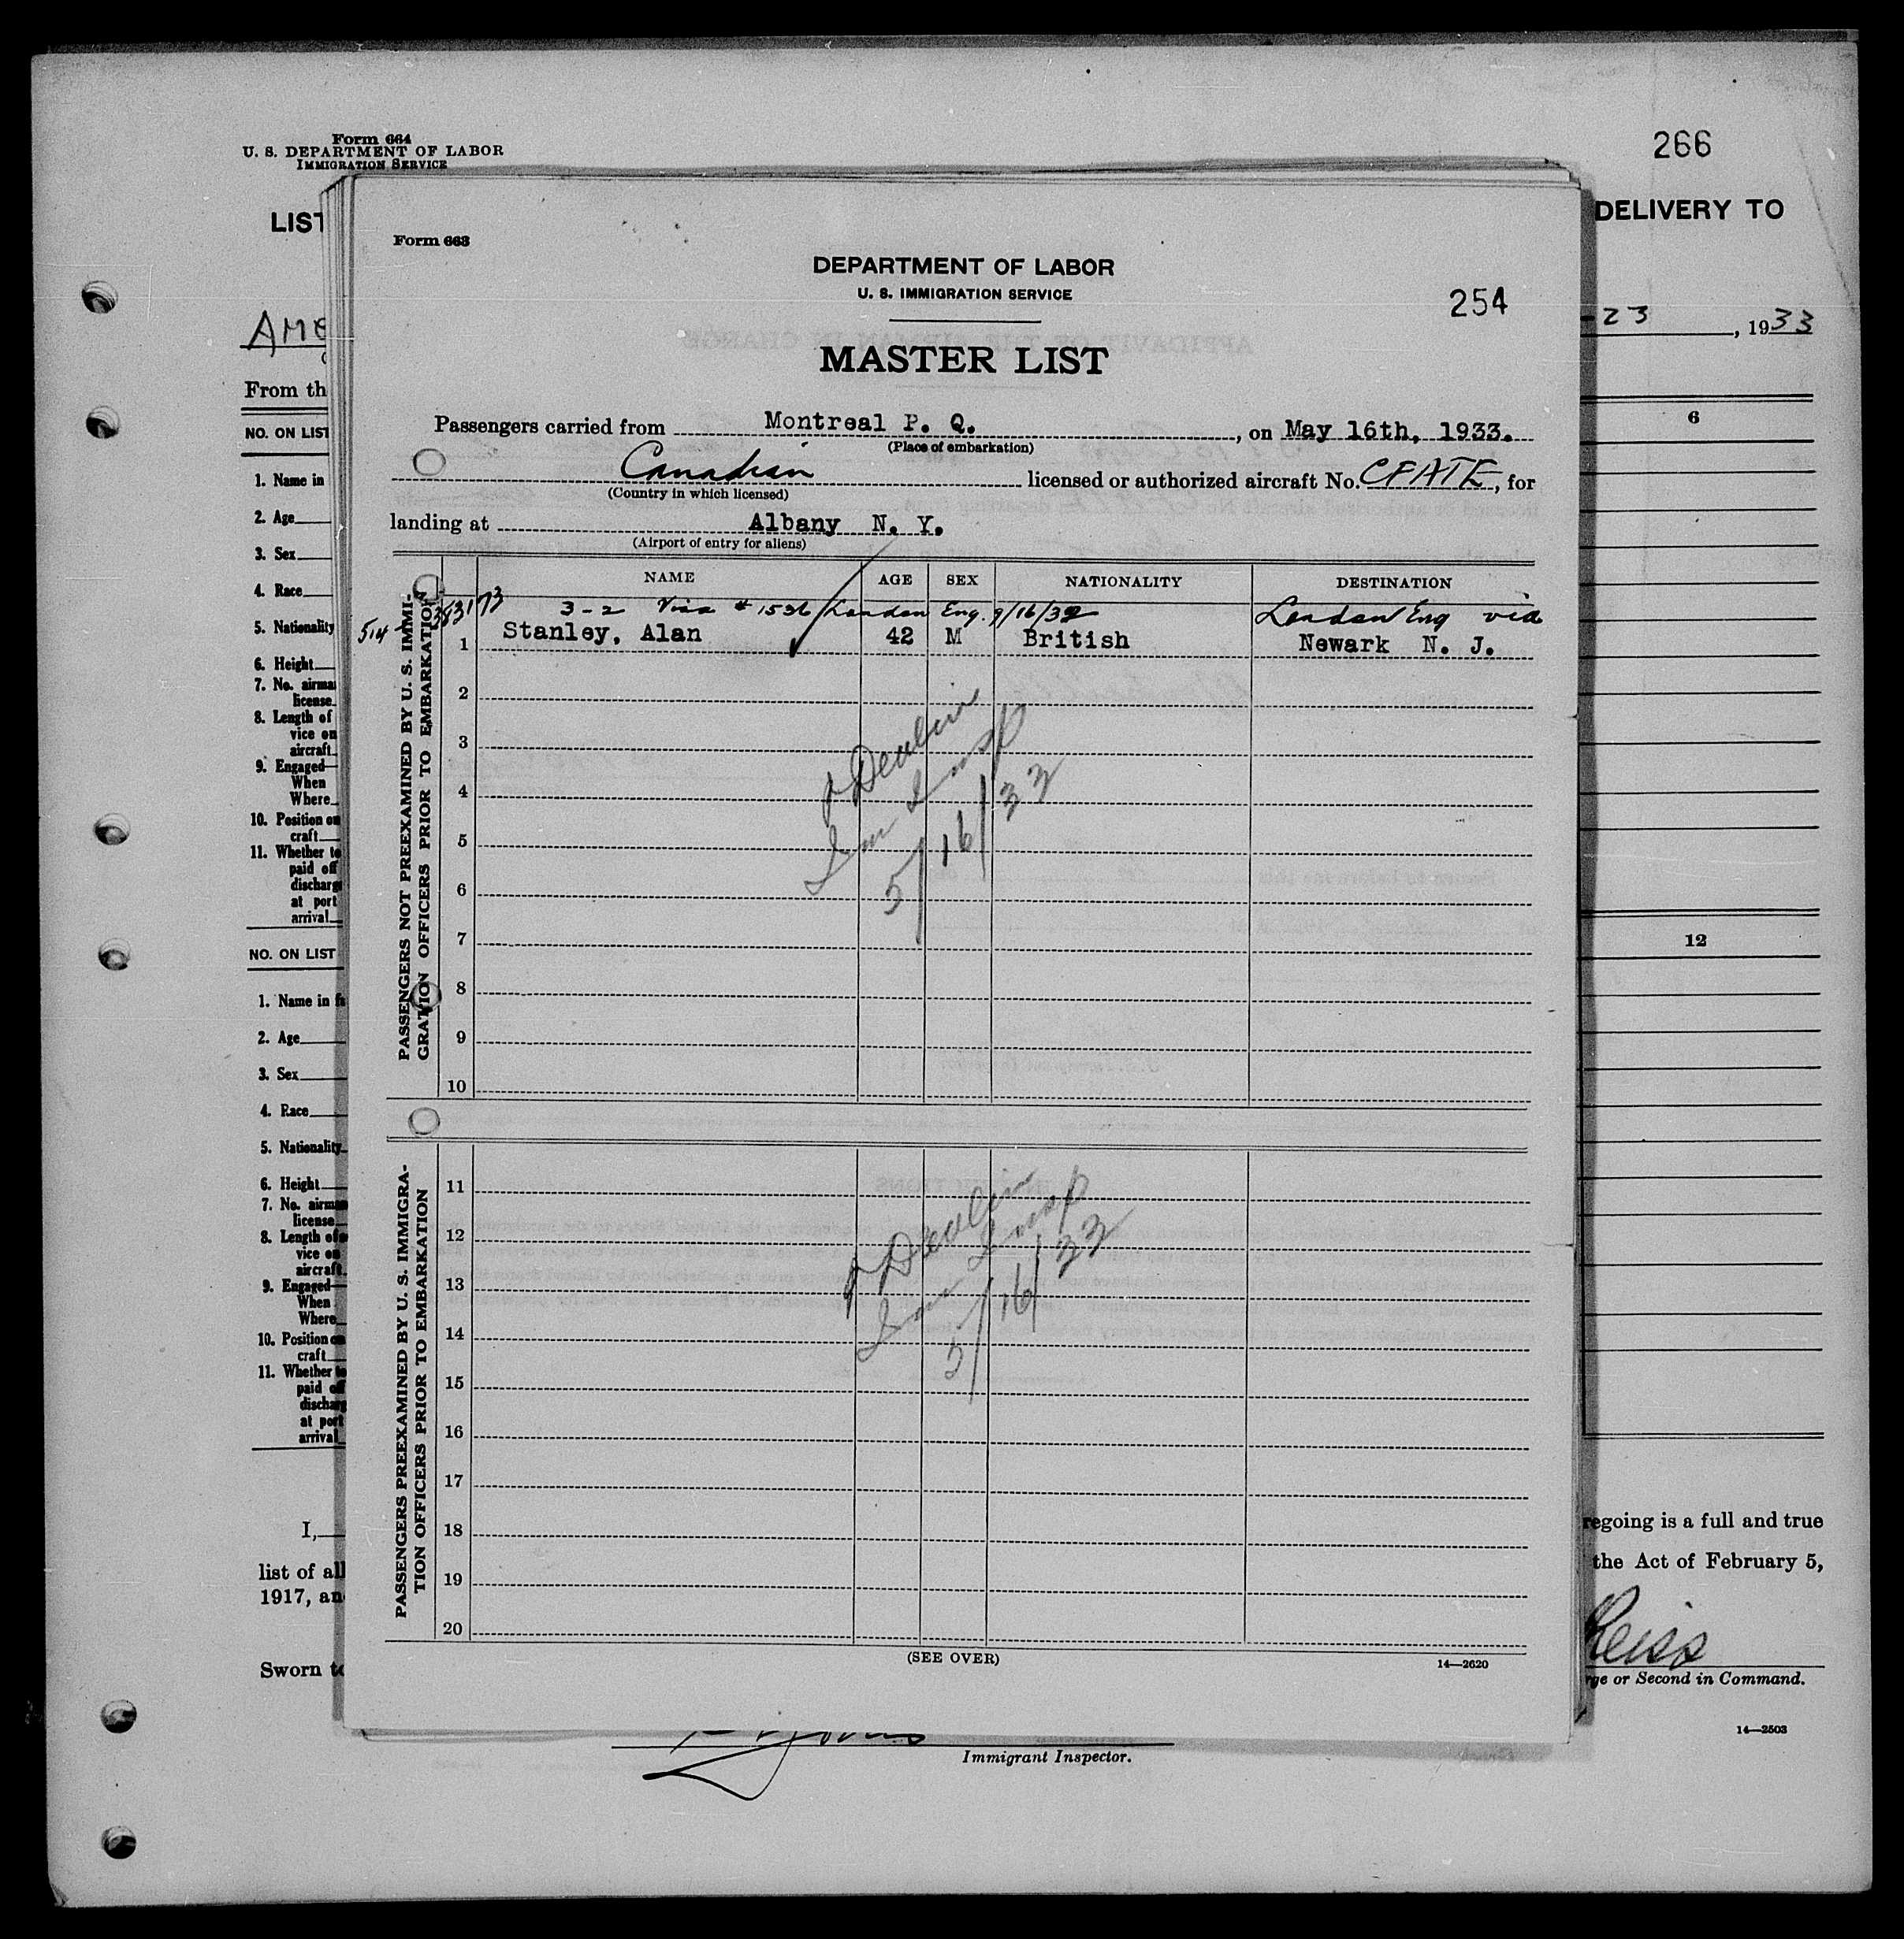 Form 664
U. S. DEPARTMENT OF LABOR
IMMIGRATION SERVICE
266
LIST
DELIVERY TO
AME
23, 1933
From th
NO. ON LIST
6
1. Name in
2. Age
3. Sex
4. Race
5. Nationality
6. Height
7. No. airma
license
8. Length of
vice on
aircraft
9. Engaged—
When
Where
10. Position on
craft
11. Whether to
paid off
discharge
at port
arrival
NO. ON LIST
12
1. Name in f
2. Age
3. Sex
4. Race
5. Nationality
6. Height
7. No. airman
license
8. Length of
vice on
aircraft
9. Engaged—
When
Where
10. Position on
craft
11. Whether to
paid off
discharg
at port
arrival
I,
regoing is a full and true
list of all
the Act of February 5,
1917, an
Reiss
Sworn to
rge or Second in Command.
14—2503
Immigrant Inspector.
Form 663
DEPARTMENT OF LABOR
U. S. IMMIGRATION SERVICE
254
MASTER LIST
Passengers carried from Montreal P. Q., on May 16th, 1933.
(Place of embarkation)
Canadian licensed or authorized aircraft No. CFATE, for
(Country in which licensed)
landing at Albany N. Y.
(Airport of entry for aliens)
NAME AGE SEX NATIONALITY DESTINATION
3-2 Visa # 1536 London Eng. 9/16/32 London Eng via
514
1 Stanley, Alan 42 M British Newark N. J.
2
3
4
5
6
7
8
9
10
Devlin
Im Insp
5/16/33
PASSENGERS NOT PREEXAMINED BY U. S. IMMI-
GRATION OFFICERS PRIOR TO EMBARKATION
11
12
13
14
15
16
17
18
19
20
Devlin
Im Insp
5/16/33
PASSENGERS PREEXAMINED BY U. S. IMMIGRA-
TION OFFICERS PRIOR TO EMBARKATION
(SEE OVER)
14—2620